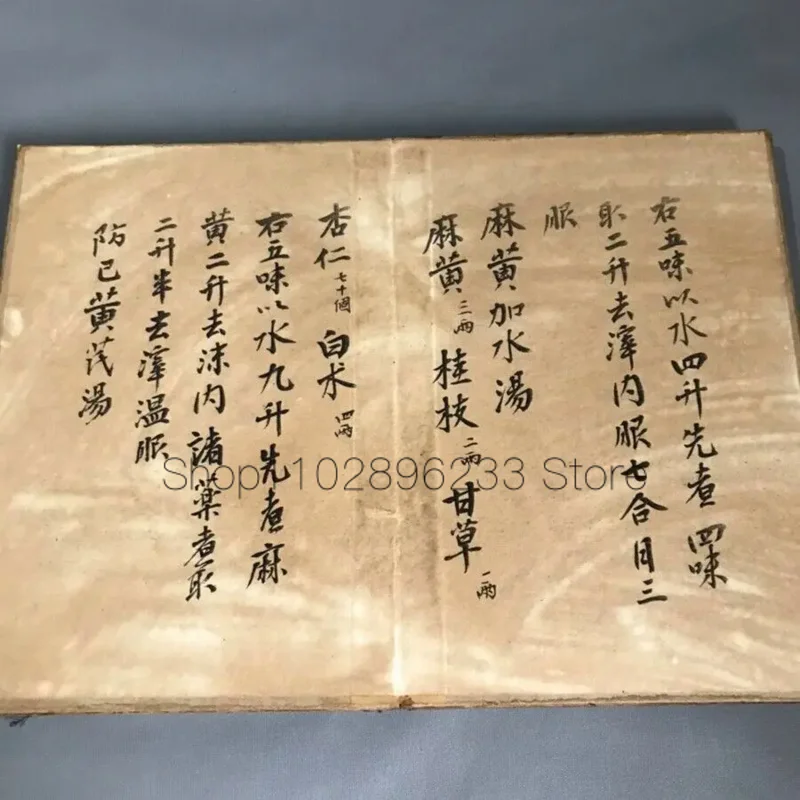 右五味以水四升先煮四味
取二升去滓内服七合日三
服
麻黄加水湯
麻黄三兩桂枝二兩甘草一兩
杏仁七十個白术四兩
右五味以水九升先煮麻
黄二升去沫内諸藥煮取
二升半去滓温服
防已黄茂湯
Shop 102896233 Store